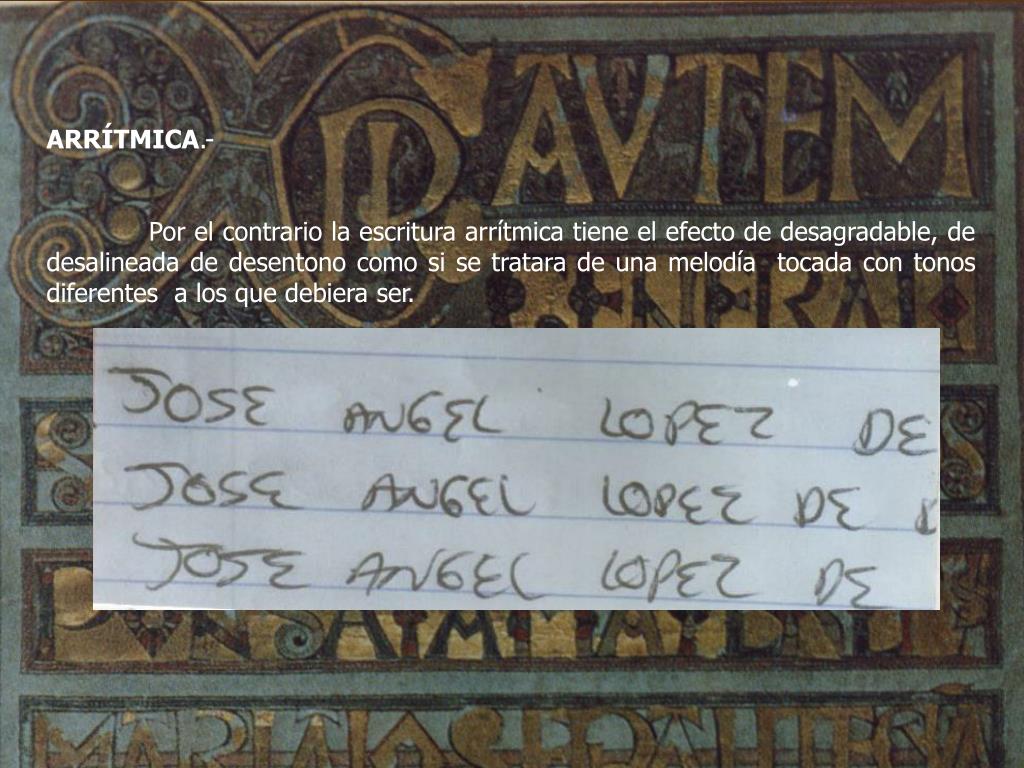 ARRÍTMICA.-
Por el contrario la escritura arrítmica tiene el efecto de desagradable, de
desalineada de desentono como si se tratara de una melodía tocada con tonos
diferentes a los que debiera ser.
AUTEM
JOSE ANGEL LOPEZ DE
JOSE ANGEL LOPEZ DE
JOSE ANGEL LOPEZ DE